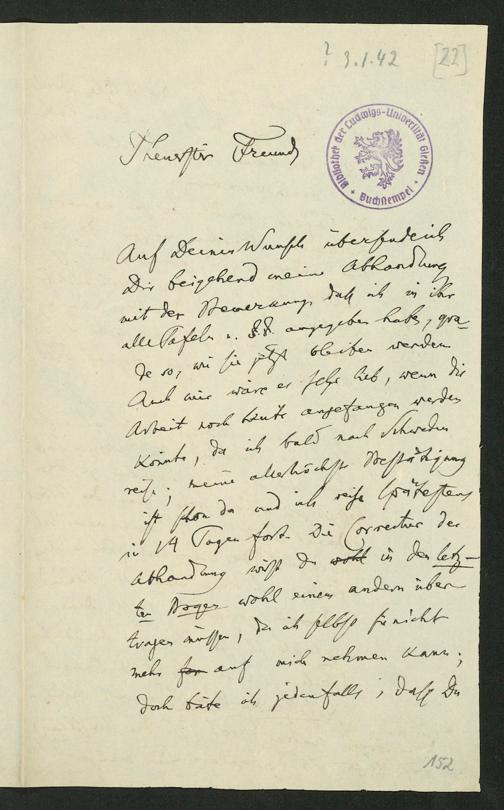 ? 3.1.42 [22]
Theuerster Freund
Bibliothek der Ludwigs-Universität Gießen
Buchstempel
Auf Deinen Wunsch übersende ich
Dir beigehend meine Abhandlung
mit der Bemerkung, daß ich in ihr
alle Tafeln u. §§. angegeben habe, gra-
de so, wie sie jetzt bleiben werden
Auch mir wäre es sehr lieb, wenn die
Arbeit noch heute angefangen werden
könnte, da ich bald nach Schweden
reise; meine allerhöchste Bestätigung
ist schon da und ich reise spätestens
in 14 Tagen fort. Die Correctur der
Abhandlung wirst du wohl in den letz-
ten Bogen wohl einem andern über-
tragen müssen, da ich selbst sie nicht
mehr auf mich nehmen kann;
doch bäte ich jedenfalls, dass Du
152